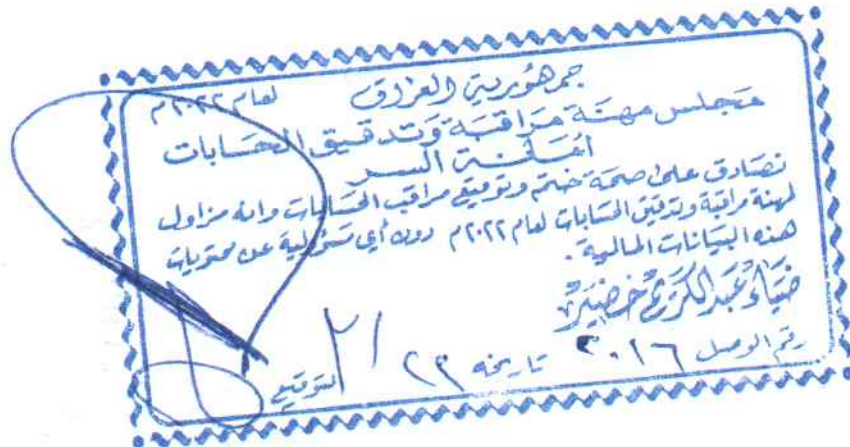 جمهورية العراق
مجلس مهنة مراقبة وتدقيق الحسابات لعام ٢٠٢٢م
أمانة السر
نصادق على صحة ختم وتوقيع مراقب الحسابات وانه مزاول
لمهنة مراقبة وتدقيق الحسابات لعام ٢٠٢٢م دون أي مسؤولية عن محتويات
هذه البيانات المالية.
ضياء عبد الكريم خضير
رقم الوصل ٢٠١٦ تاريخه ٢٢ التوقيع